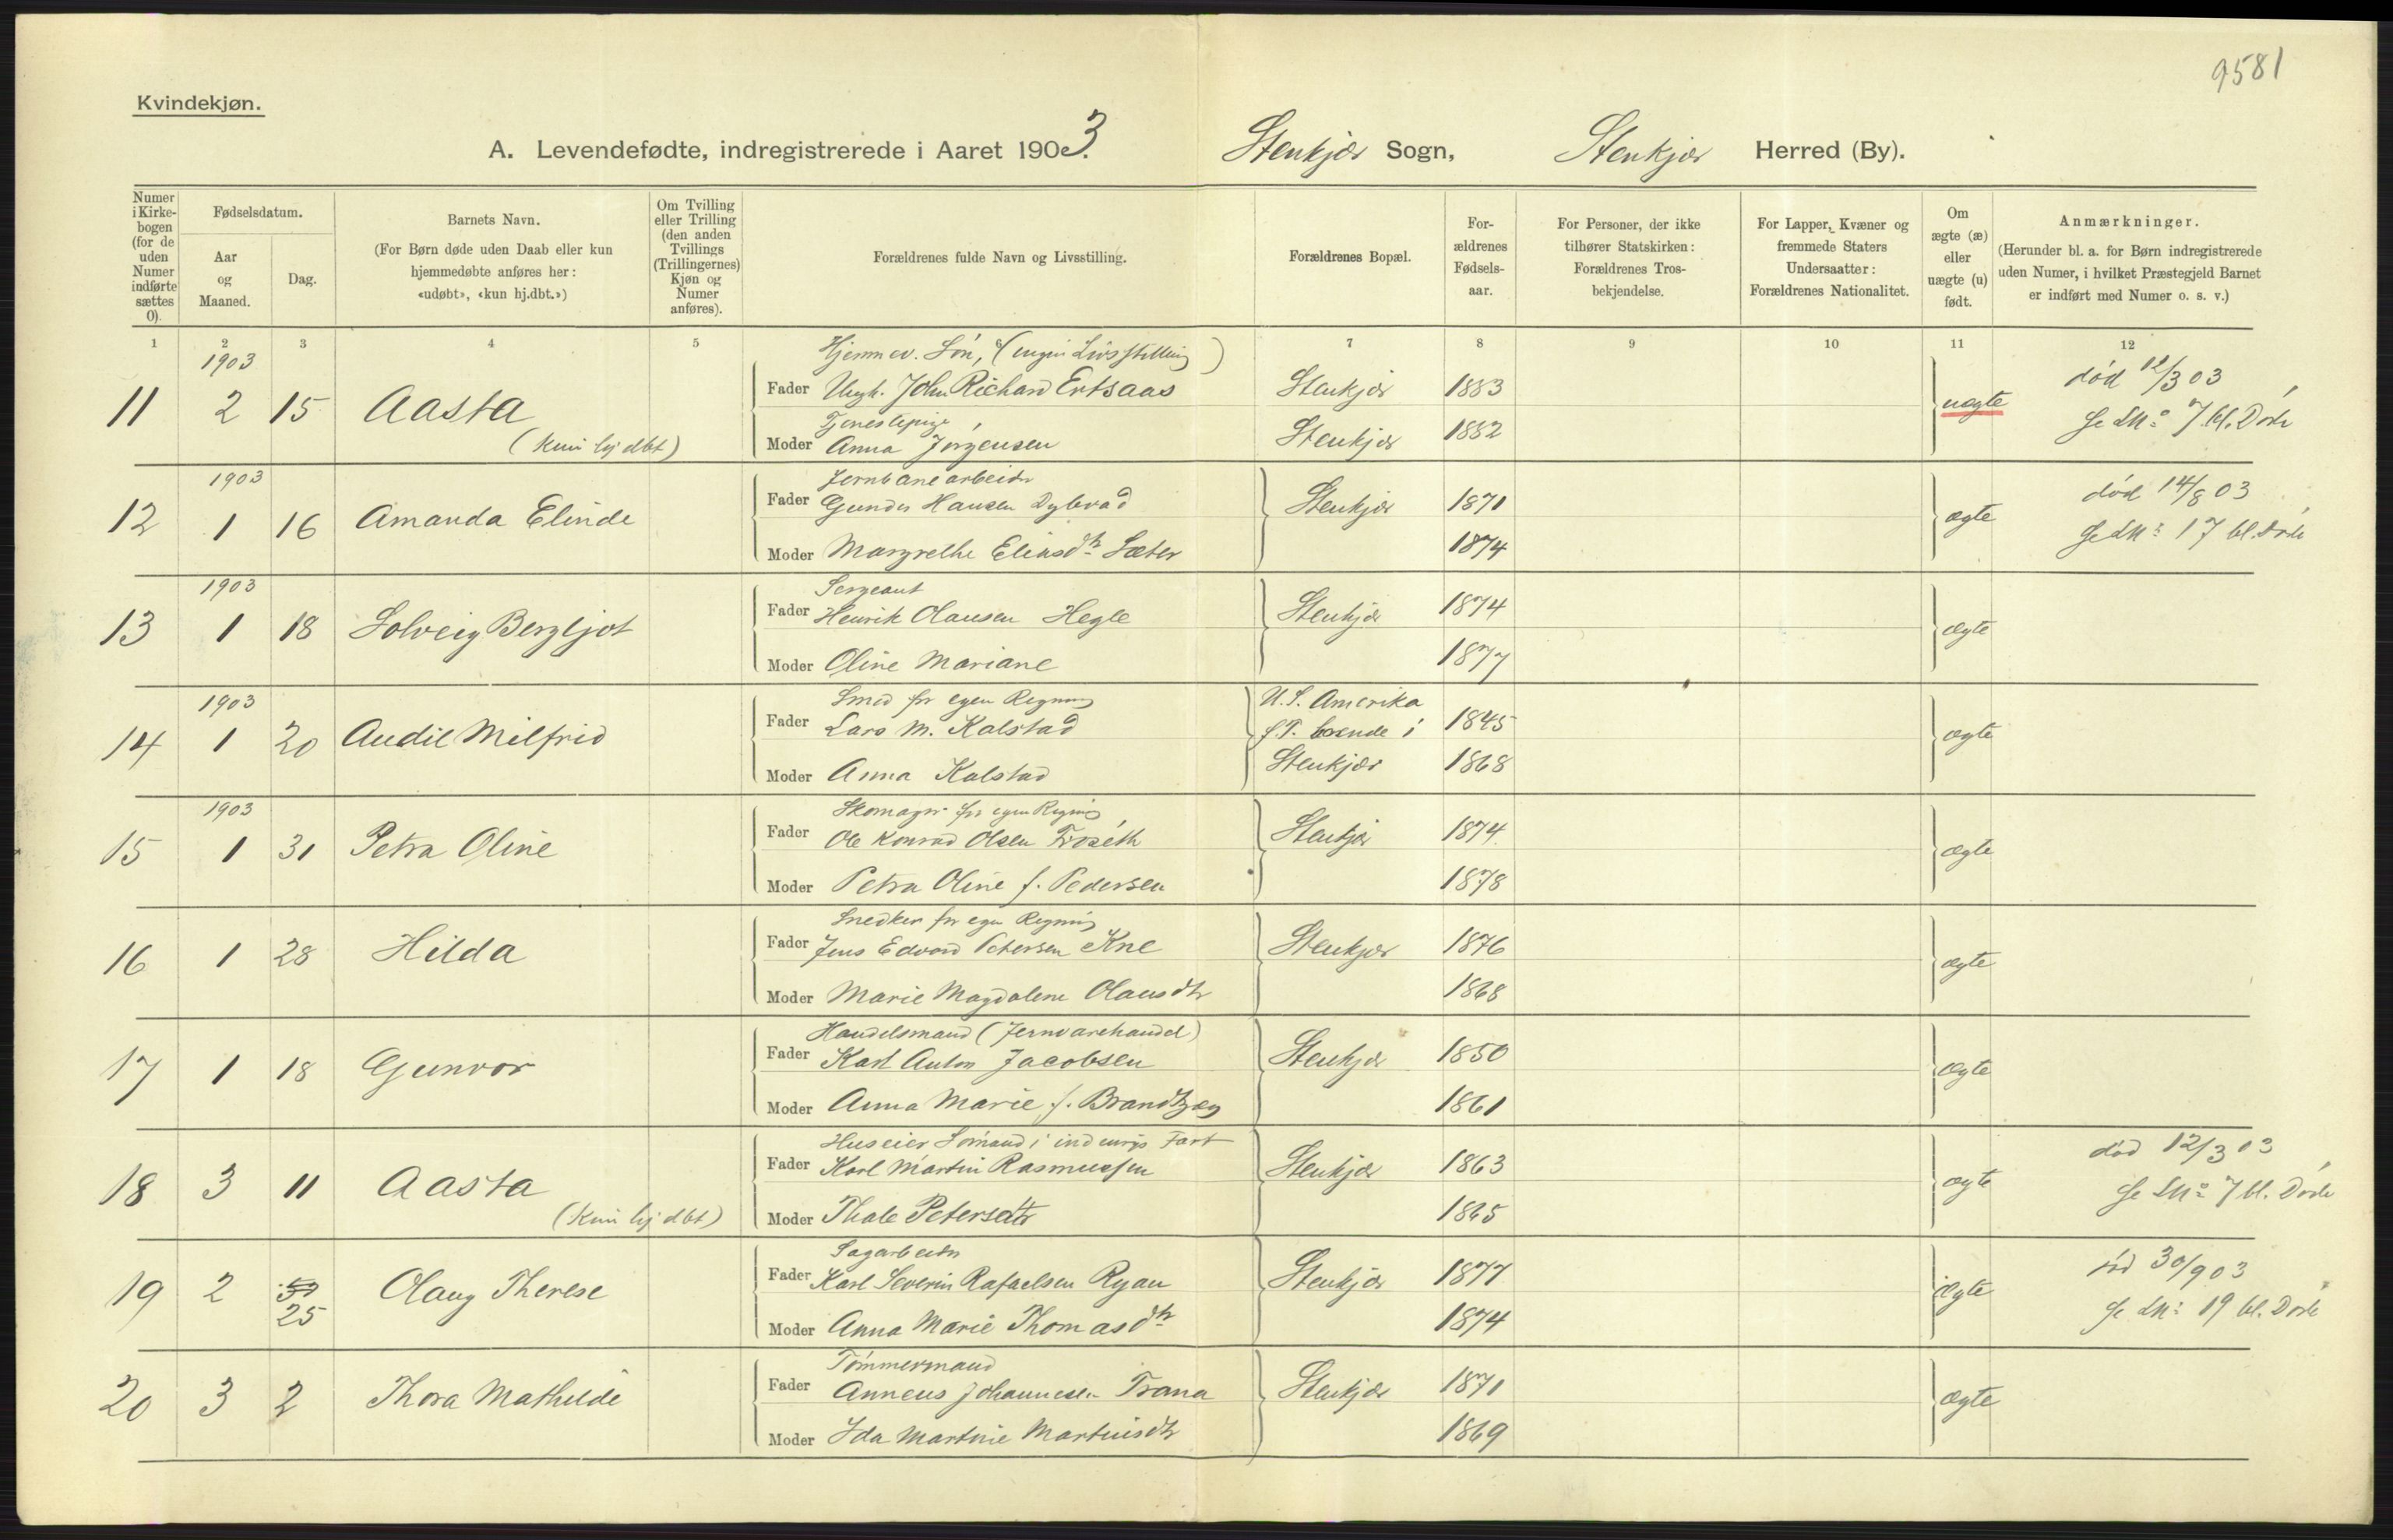 9581
Kvindekjøn.
A. Levendefødte, indregistrerede i Aaret 1903. Stenkjær Sogn, Stenkjær Herred (By).
Numer i Kirke-bogen (for de uden Numer indførte sættes 0).
Fødselsdatum.
Aar og Maaned.
Dag.
Barnets Navn.
(For Børn døde uden Daab eller kun
hjemmedøbte anføres her:
«udøbt», «kun hj.dbt.»)
Om Tvilling
eller Trilling
(den anden
Tvillings
(Trillingernes)
Kjøn og
Numer
anføres).
Forældrenes fulde Navn og Livsstilling.
Forældrenes Bopæl.
For-
ældrenes
Fødsels-
aar.
For Personer, der ikke
tilhører Statskirken:
Forældrenes Tros-
bekjendelse.
For Lapper, Kvæner og
fremmede Staters
Undersaatter:
Forældrenes Nationalitet.
Om
ægte (æ)
eller
uægte (u)
født.
Anmærkninger.
(Herunder bl. a. for Børn indregistrerede
uden Numer, i hvilket Præstegjeld Barnet
er indført med Numer o. s. v.)
1 2 3 4 5 6 7 8 9 10 11 12
1903
Hjemmev. Søn, (ingen Livsstilling)
11 2 15 Aasta
(kun hj dbt)
Fader Ungk. John Richard Ertsaas Stenkjær 1883
Tjenestepige
Moder Anna Jørgensen Stenkjær 1882
uægte
død 12/3 03
Se LN: 7 bl. Døde
1903
Jernbanearbeider
12 1 16 Amanda Elinde
Fader Gunder Hansen Dybvad Stenkjær 1871
Moder Margrethe Eliasdtr Sæter 1874
ægte
død 14/8 03
Se LN: 17 bl. Døde
1903
Sergeant
13 1 18 Solveig Bergljot
Fader Henrik Olausen Hegle Stenkjær 1874
Moder Oline Mariane 1877
ægte
1903
Smed for egen Regning
14 1 20 Audil Milfrid
Fader Lars M. Kalstad 1845
Moder Anna Kalstad 1868
U. S. Amerika
f. T. boende i
Stenkjær
ægte
1903
Skomager for egen Regning
15 1 31 Petra Oline
Fader Ole Konrad Olsen Troseth Stenkjær 1874
Moder Petra Oline f. Pedersen 1878
ægte
Snedker for egen Regning
16 1 28 Hilda
Fader Jens Edvard Petersen Kne Stenkjær 1876
Moder Marie Magdalene Olausdtr 1868
ægte
Handelsmand (Jernvarehandel)
17 1 18 Gunvor
Fader Karl Anton Jacobsen Stenkjær 1850
Moder Anna Marie f. Brandtzæg 1861
ægte
Huseier Sømand i indenrigs Fart
18 3 11 Aasta
(Kun hj dbt)
Fader Karl Martin Rasmussen Stenkjær 1863
Moder Thale Petersdtr 1865
ægte
død 12/3 03
Se LN: 7 bl. Døde
Sagarbeider
19 2 25 Olaug Therese
Fader Karl Severin Rafaelsen Ryan Stenkjær 1877
Moder Anna Marie Thomasdtr 1874
ægte
død 30/9 03
Se LN: 19 bl. Døde
Tømmermand
20 3 2 Thora Mathilde
Fader Anneus Johannesen Trana Stenkjær 1871
Moder Ida Martine Martinisdtr 1869
ægte